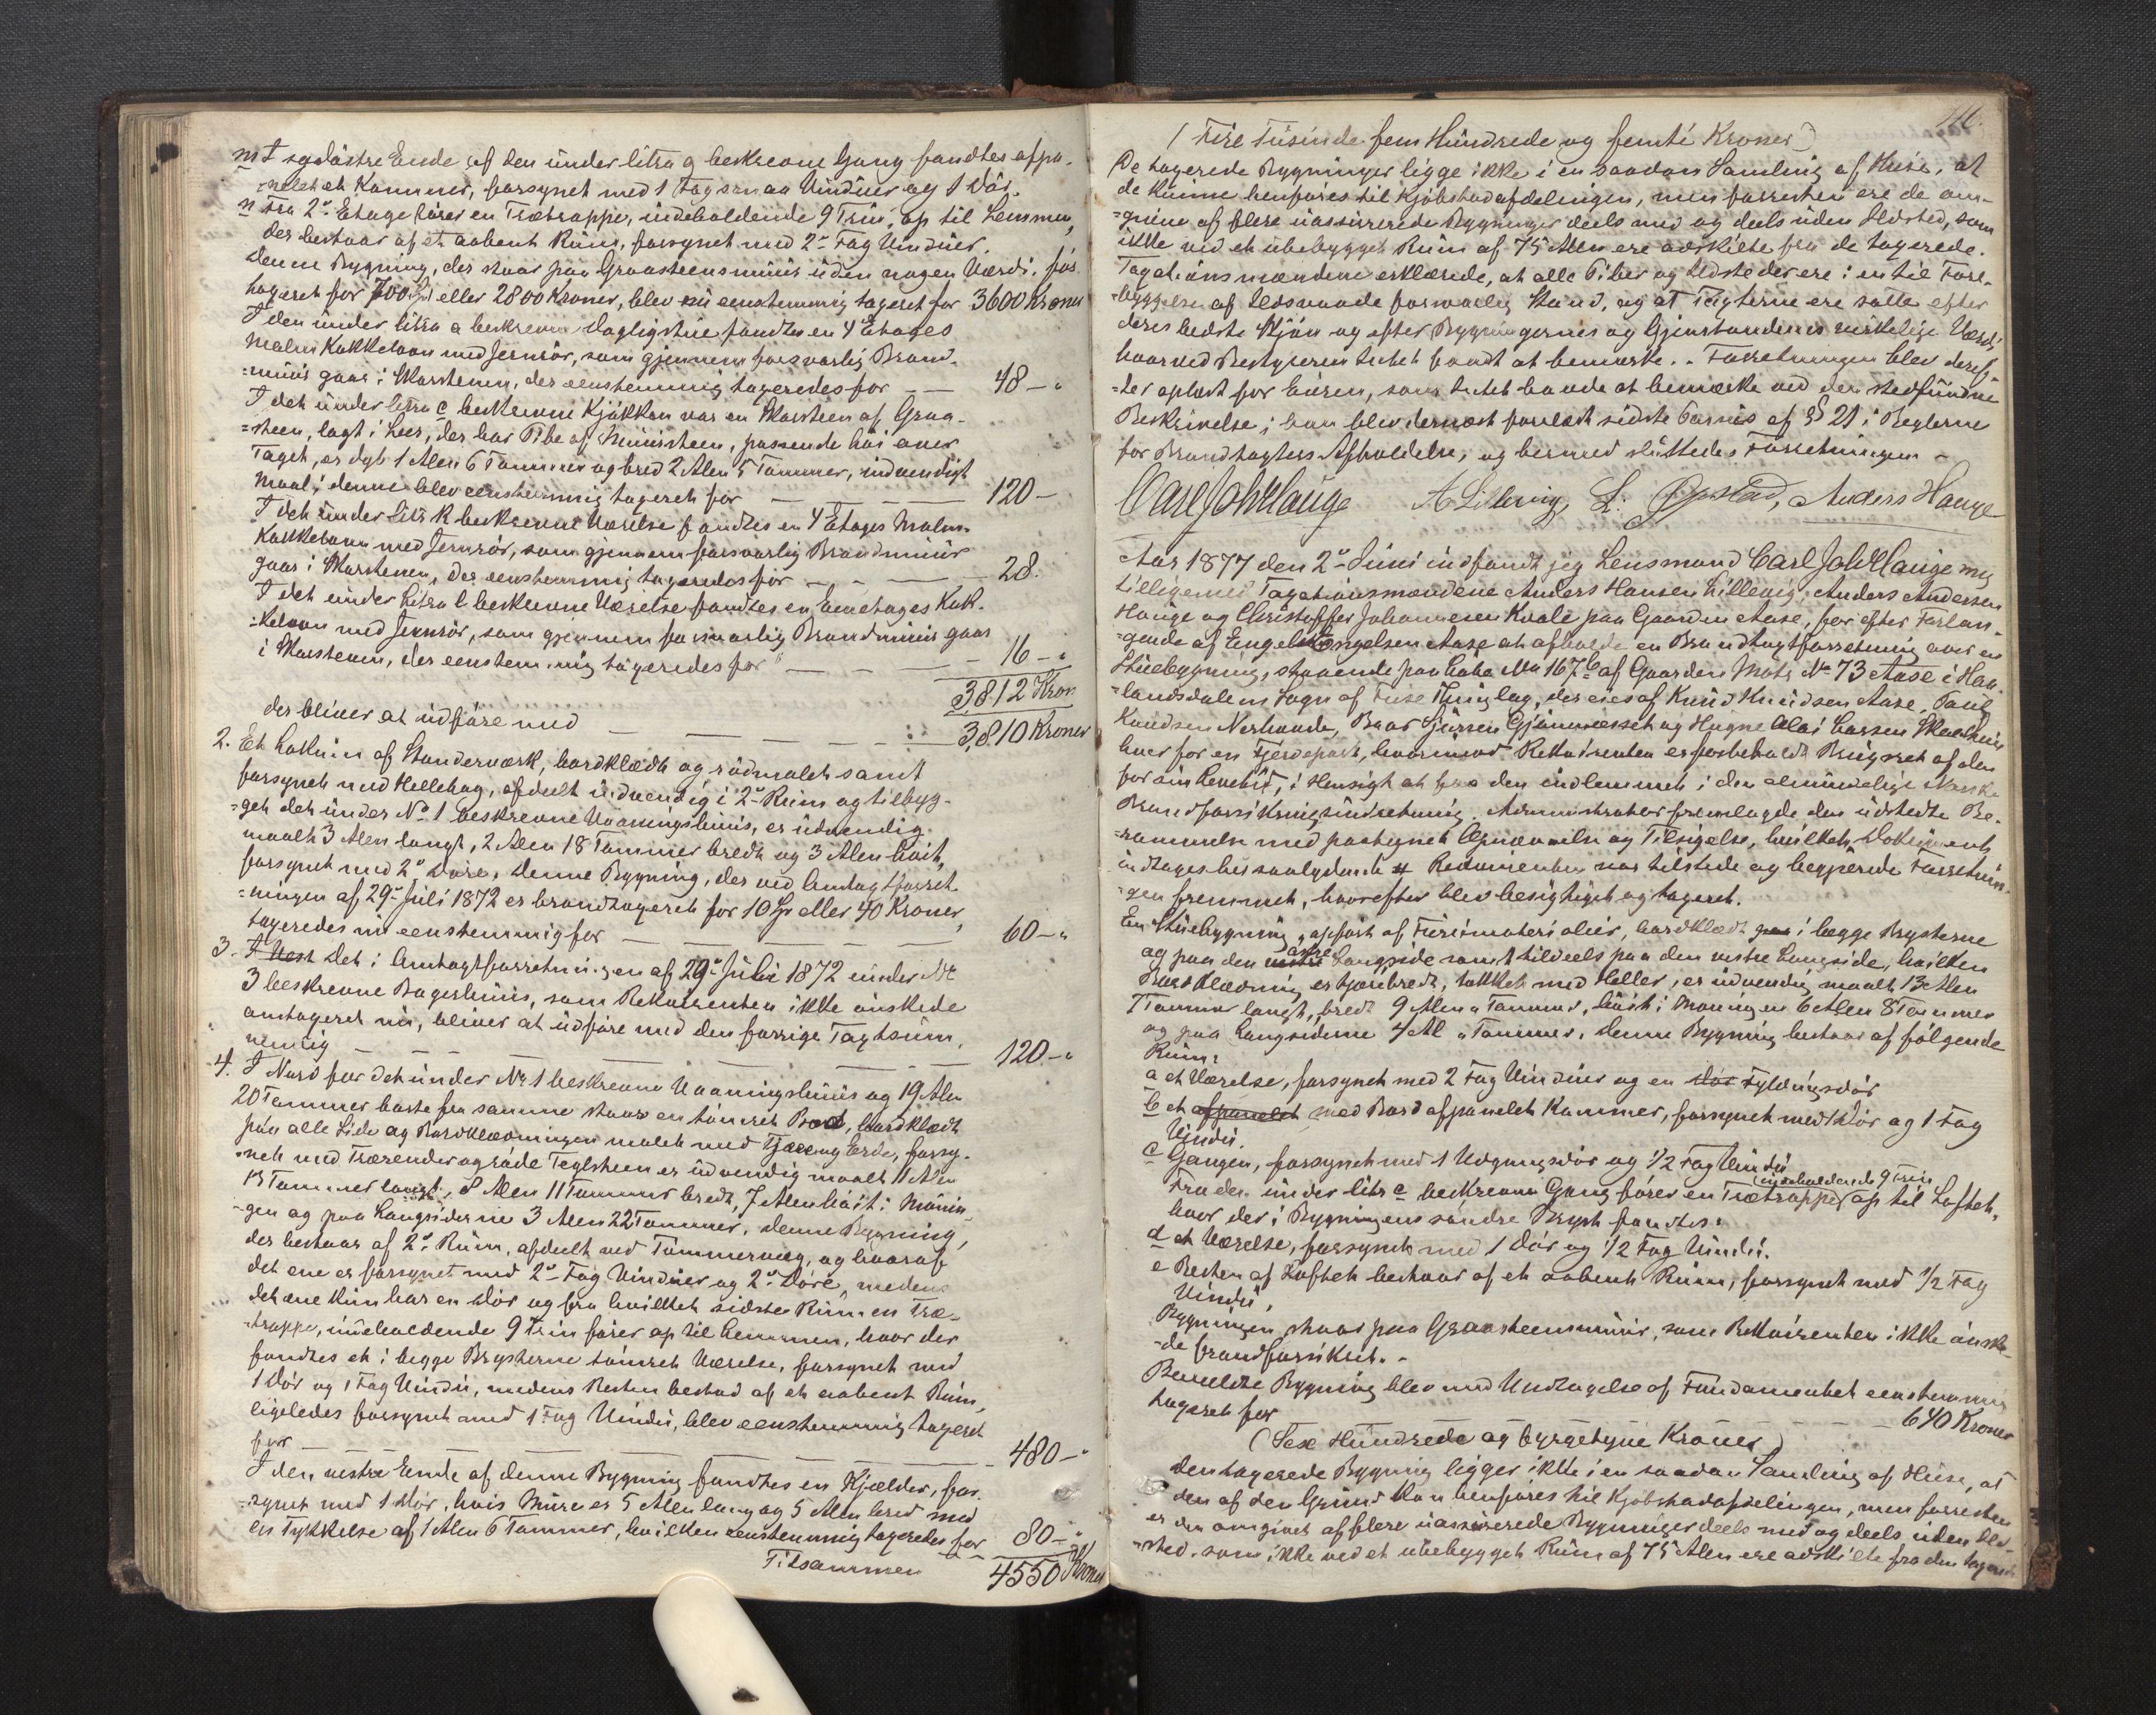 m I sydöstre Ende af den under litra g beskrevne Gang fandtes afpa-
nelet et Kammer, forsynet med 1 Fag smaa Vinduer og 1 Dör.
n Fra 2den Etage förer en Trætrappe, indeholdende 9 Trin, op til Lemmen,
der bestaar af et aabent Rum, forsynet med 2de Fag Vinduer.
Denne Bygning, der staar paa Graasteensmuur uden nogen Værdi, för
taxeret for 700 Spd eller 2800 Kroner, blev nu eenstemmig taxeret for 3600 Kroner
I den under litra a beskrevne Dagligstue fandtes en 4 Etages
Malm Kakkelovn med Jernrör, som gjennem forsvarlig Brand-
=muur gaar i Skorstenen, der eenstemmig taxeredes for — — 48 — "
I det under litra c beskrevne Kjökken var en Skorsteen af Graa-
=steen, lagt i Leer, der har Pibe af Muursteen, passende höi over
Taget, er dyb 1 Alen 6 Tommer og bred 2 Alen 5 Tommer, indvendigt
Maal; denne blev eenstemmig taxeret for — — 120 —
I det under litr k beskrevne Værelse fandtes en 4 Etages Malm-
Kakkelovn med Jernrör, som gjennem forsvarlig Brandmuur
gaar i Skorstenen, der eenstemmig taxeredes for — — — 28.
I det under Litra l beskrevne Værelse fandtes en Eenetages Kak-
=kelovn med Jernrör, som gjennem forsvarlig Brandmuur gaar
i Skorstenen, der eenstemmig taxeredes for — — — 16 — "
3,812 Kron
der bliver at udföre med — — — — 3,810 Kroner
2. Et Lokum af Standerværk, bordklædt og rödmalet samt
forsynet med Helletag, afdeelt indvendig i 2de Rum og tilbyg-
=get det under No 1 beskrevne Vaaningshuus, er udvendig
maalt 3 Alen langt, 2 Alen 18 Tommer bredt og 3 Alen höit,
forsynet med 2de Döre. Denne Bygning, der ved Omtaxtforret-
=ningen af 29de Juli 1872 er brandtaxeret for 10 Spd eller 40 Kroner,
taxeredes nu eenstemmig for — — — 60 — "
3. I Vest Det i Omtaxtforretningen af 29de Juli 1872 under No
3 beskrevne Bagerhuus, som Rekvirenten ikke önskede
omtaxeret nu, bliver at udföre med den forrige Taxtsum,
nemlig — — — — 120 — "
4. I Nord for det under No 1 beskrevne Vaaningshuus og 19 Alen
20 Tommer borte fra samme staar en tömret Bod, bordklædt
paa alle Sider og Bordklædningen malet med Tjære og Erde, forsy-
=net med Trærender og röde Teglsteen er udvendig maalt 11 Alen
13 Tommer langt, 8 Alen 11 Tommer bredt, 7 Alen höit i Mönin-
gen og paa Langsiderne 3 Alen 22 Tommer. Denne Bygning,
der bestaar af 2de Rum, afdeelt ved Tömmervæg, og hvoraf
det ene er forsynet med 2de Fag Vinduer og 2de Döre, medens
det ene kun har en Dör og fra hvilket sidste Rum en Træ-
=trappe, indeholdende 9 Trin förer op til Lemmen, hvor der
fandtes et i begge Brysterne tömret Værelse, forsynet med
1 Dör og 1 Fag Vindu, medens Resten bestod af et aabent Rum,
ligeledes forsynet med 1 Fag Vindu, blev eenstemmig taxeret
for — — — — 480 — "
I den vestre Ende af denne Bygning fandtes en Kjælder, for-
synet med 1 Dör, hvis Mure er 5 Alen lang og 5 Alen bred med
en Tykkelse af 1 Alen 6 Tommer, hvilken eenstemmig taxeredes for 80 — "
Tilsammen 4550 Kroner
116.
(Fire Tusinde fem Hundrede og femti Kroner)
De taxerede Bygninger ligge ikke i en saadan Samling af Huse, at
de kunne henföres til Kjöbstadafdelingen, men forresten ere de om-
=givne af flere uassurerede Bygninger deels med og deels uden Ildsted, som
ikke ved et ubebygget Rum af 75 Alen ere adskilte fra de taxerede.
Taxationsmændene erklærede, at alle Piber og Ildsteder ere i en til Fore-
=byggelse af Ildsvaade forsvarlig Stand, og at Taxterne ere satte efter
deres bedste Skjön og efter Bygningernes og Gjenstandenes virkelige Værdi
hvorved Bestyreren Intet fandt at bemærke. Forretningen blev deref-
=ter oplæst for Eieren, som Intet havde at bemærke ved den stedfundne
Beskrivelse; han blev dernæst forelæst sidste Passus af § 21 i Reglerne
for Brandtaxters Afholdelse, og hermed sluttedes Forretningen.
Carl Joh Hauge A Lillevig, L. Opstad, Anders Hauge
Aar 1877 den 2den Juni indfandt jeg Lensmand Carl Joh Hauge mig
tilligemed Taxationsmændene Anders Hansen Lillevig, Anders Andersen
Hauge og Christoffer Johannesen Kvale paa Gaarden Aase, for efter Forlan-
=gende af Engel Engelsen Aase at afholde en Brandtaxtforretning over en
Stuebygning, staaende paa Löbe No 167 b af Gaarden Matr No 73 Aase i Haa-
landsdalens Sogn af Fuse Thinglag, der eies af Knud Knudsen Aase,
Knudsen Nerhovde, Baar Sjursen Gjönnesset og Larsen
hver for en Fjerdepart, hvorimod Rekvirenten er forbeholdt Brugsret af den
for sin Levetid, i Hensigt at faa den indlemmet i den almindelige Norske
Brandforsikringsindretning. Administrator fremlagde den udstedte Be-
=rammelse med paategnet Opnævnelse og Tilsigelse, hvilket Dokument
indtages her saalydende # Rekvirenten var tilstede og begjærede Forretnin-
=gen fremmet, hvorefter blev besigtiget og taxeret.
En Stuebygning, opfört af Furumaterialier, bordklædt paa i begge Brysterne
og paa den vestre östre Langside samt tildeels paa den vestre Langside, hvilken
Bordklædning er tjærebredt, tækket med Heller, er udvendig maalt 13 Alen
7 Tommer langt, bredt 9 Alen " Tommer, höit i Möningen 6 Alen 8 Tommer
og paa Langsiderne 4 Al " Tommer. Denne Bygning bestaar af fölgende
Rum:
a et Værelse, forsynet med 2 Fag Vinduer og en Dör Fyldingsdör
b et afpanelet med Bord afpanelet Kammer, forsynet med 1 Dör og 1 Fag
Vindu.
c Gangen, forsynet med 1 Udgangsdör og 1/2 Fag Vindu
Fra den under litr c beskrevne Gang förer en Trætrappe (indeholdende 9 Trin op til Loftet,
hvor der i Bygningens söndre Bryst fandtes:
d et Værelse, forsynet med 1 Dör og 1/2 Fag Vindu.
e Resten af Loftet bestaar af et aabent Rum, forsynet med 1/2 Fag
Vindu.
Bygningen staar paa Graasteensmuur, som Rekvirenten ikke önske-
=de brandforsikret. -
Bemeldte Bygning blev med Undtagelse af Fundamentet eenstemmig
taxeret for — — — 640 Kroner
(Sex Hundrede og fyrgetyve Kroner)
Den taxerede Bygning ligger ikke i en saadan Samling af Huse, at
den af den Grund kan henföres til Kjöbstadafdelingen, men forresten
er den omgivet af flere uassurerede Bygninger deels med og deels uden Ild-
=sted, som ikke ved et ubebygget Rum af 75 Alen ere adskilte fra den taxerede